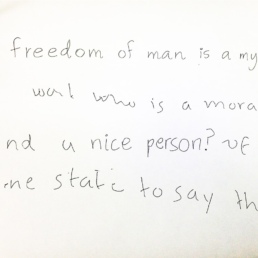 freedom of man is a my
who is a mora
nd a nice person? of
ne static to say th